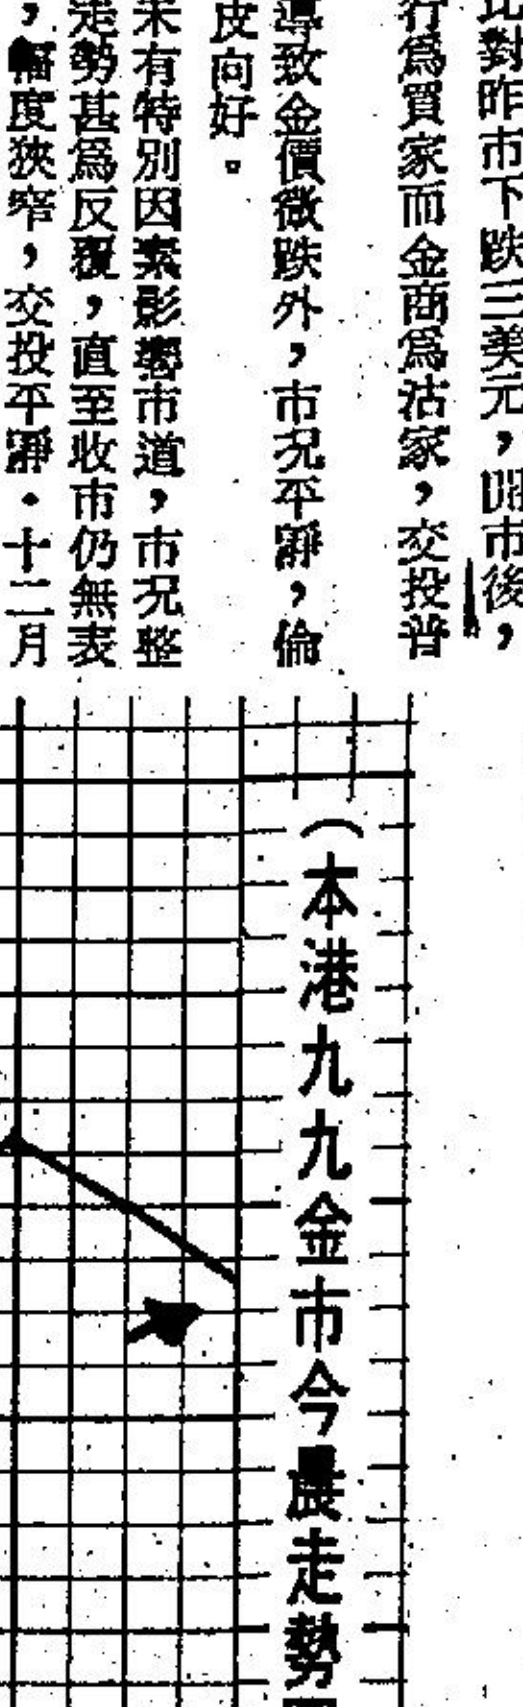 比對昨市下跌三美元，開市後，
行為買家而金商為沽家，交投普
導致金價微跌外，市況平靜，倫
皮向好。
未有特別因素影響市道，市況整
走勢甚為反覆，直至收市仍無表
，幅度狹窄，交投平靜．十二月
（本港九九金市今晨走勢